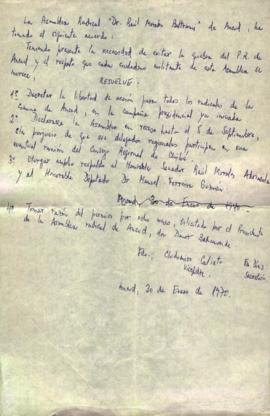 La Asamblea Radical "Dr. Raúl Morales Beltramí" de Ancud, ha
tomado el siguiente acuerdo:
Teniendo presente la necesidad de evitar la quiebra del P.R. de
Ancud y el respeto que cada ciudadano militante de esta Asamblea se
merece,
RESUELVE:
1º Decretar la libertad de acción para todos los radicales de la
comuna de Ancud, en la campaña presidencial ya iniciada.
2º Declararse la Asamblea en receso hasta el 5 de Septiembre,
sin perjuicio de que sus delegados regionales participen en una
eventual reunión del Consejo Regional de Chiloé.
3º Otorgar amplio respaldo al Honorable Senador Raúl Morales Adriasola
y al Honorable Diputado Dr. Manuel Ferreira Guzmán.
Ancud, 20 de Enero de 1970.
4º Tomar razón del permiso por ocho meses, solicitado por el Presidente
de la Asamblea radical de Ancud, don Bahamonde
Fdo.;
Secretario
Ancud, 20 de Enero de 1970.